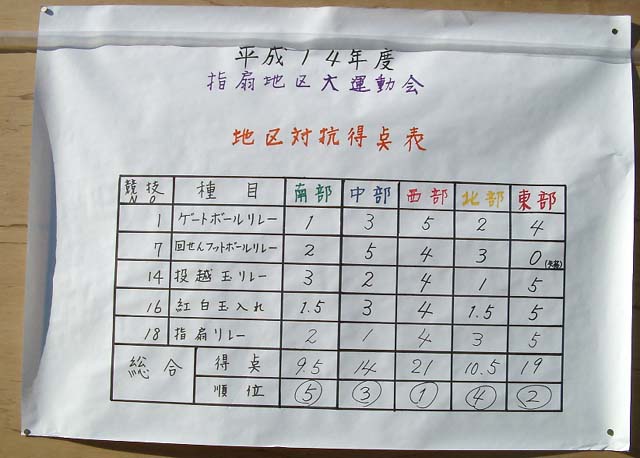 平成14年度
指扇地区大運動会
地区対抗得点表
競技NO 種目 南部 中部 西部 北部 東部
1 ゲートボールリレー 1 3 5 2 4
7 回せんフットボールリレー 2 5 4 3 0(失格)
14 投越玉リレー 3 2 4 1 5
16 紅白玉入れ 1.5 3 4 1.5 5
18 指扇リレー 2 1 4 3 5
総合 得点 9.5 14 21 10.5 19
順位 ⑤ ③ ① ④ ②